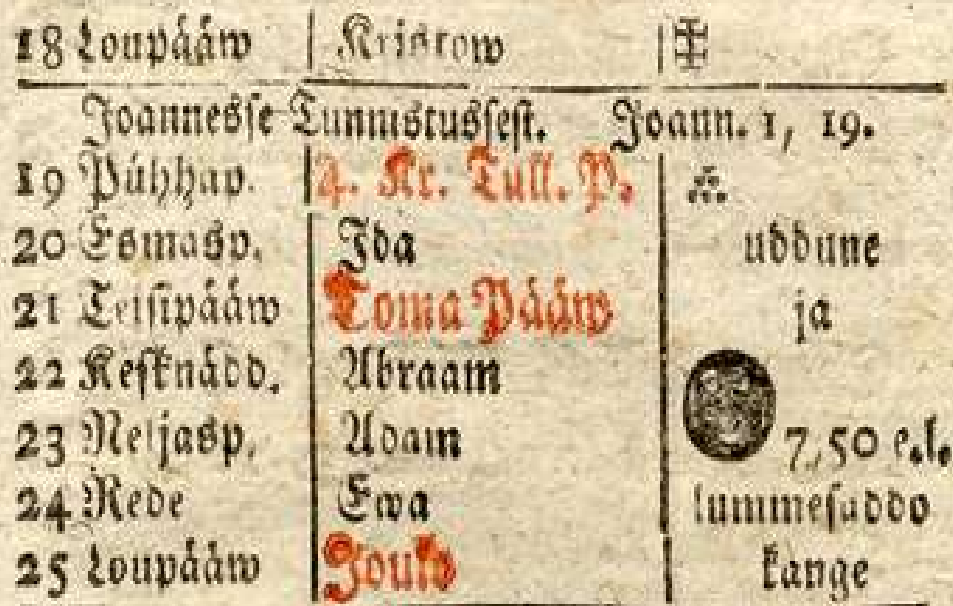 18 Loupääw Kristow
Joannesse Tunnistussest. Joann. 1, 19.
19 Pühhap. 4. Kr. Tull. P.
20 Esmasp. Ida uddune
21 Teisipääw Toma Pääw ja
22 Keſknädd. Abraam
23 Neljasp. Adam 7,50 e.l.
24 Rede Ewa lummesaddo
25 Loupääw Jould kange